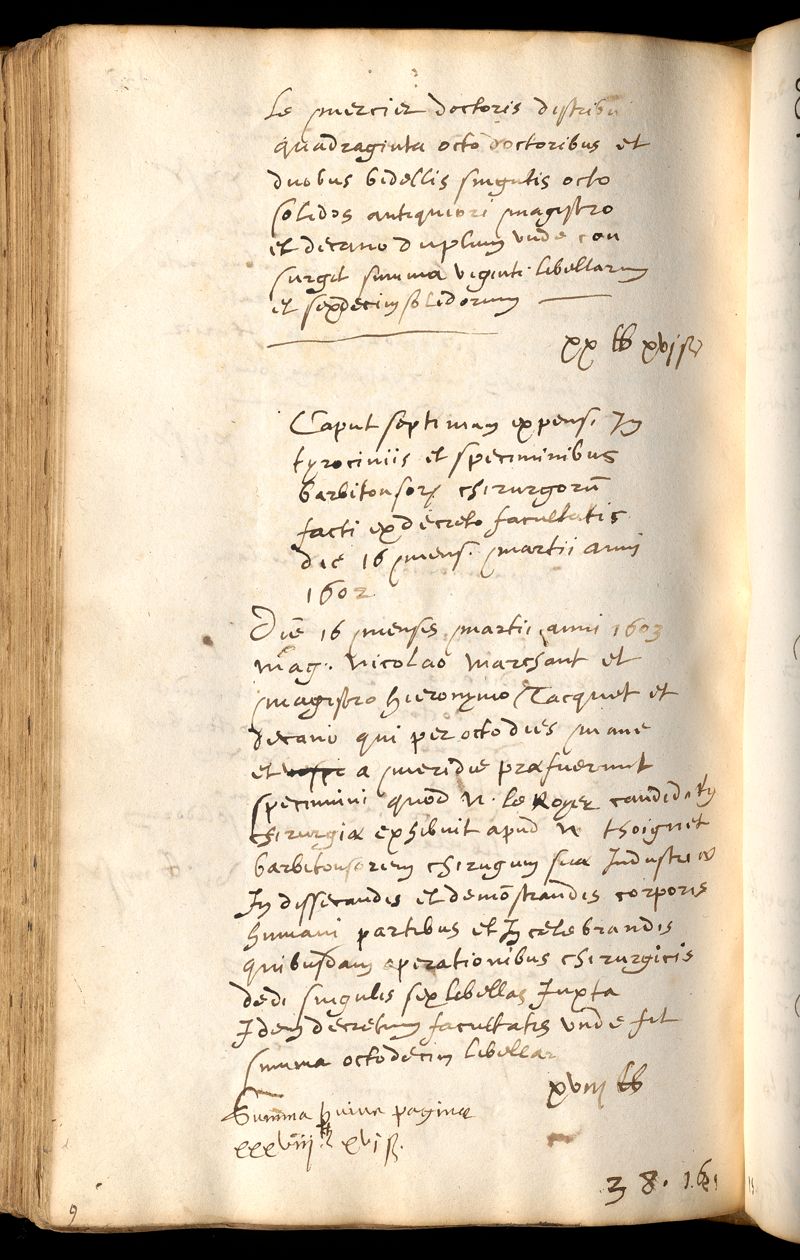 Le mercier doctoris distribui
quadraginta octo doctoribus et
duobus bidellis singulis octo
solidos antiquiori magistro
et decano duplum unde con
surgit summa viginti libellarum
et sexdecim solidorum
xx lb xvj ß
Caput septimum expens. In
tyrociniis et speciminibus
barbitonsorꝝ chirurgorū
facti ex decreto facultatis
die 16 mens. martii anni
1602
Die 16 menses martii anni 1603
mag. Nicolao Marchant et
magistro hieronymo Tacquet et
decano qui per octo dies mane
et a meridie præfuerunt
specimini quod N. le Royer candidatus
chirurgiæ exhibuit apud N thoignet
barbitonsorem chirugum suæ Industriæ
In dissecandis et demōstrandis corporis
humani partibus et In celebrandis
quibusdam operationibus chirurgicis
dedi singulis sex libellas Juxta
Idem decretum facultatis unde fit
summa octodecim libellar
xviij lb
Summa huius paginæ
xxxviij lb xvj ß.
38. 16
9